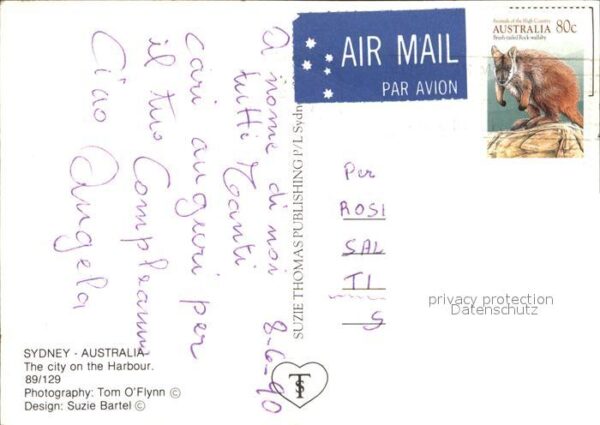 A nome di noi
tutti Tanti
cari auguri per
il tuo Compleanno
Ciao Angela
8-6-90
AIR MAIL
PAR AVION
Animals of the High Country
AUSTRALIA 80c
Brush-tailed Rock-wallaby
SUZIE THOMAS PUBLISHING P/L Sydn
Per
ROSI
SAL
TI
S
privacy protection
Datenschutz
SYDNEY - AUSTRALIA
The city on the Harbour.
89/129
Photography: Tom O'Flynn ©
Design: Suzie Bartel ©